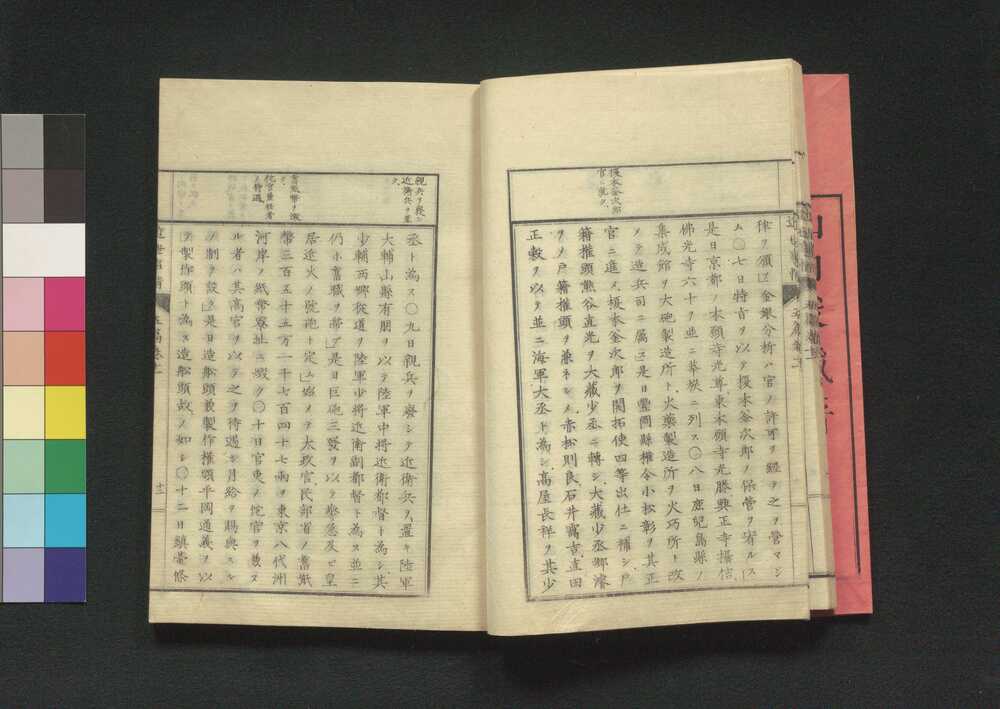 榎本釜次郎
官ニ就ク
律ヲ領シ金銀分析ハ官ノ許可ヲ經テ之ヲ營マシ
ム〇七日特旨ヲ以テ榎本釜次郎ノ保管ヲ宥ルス
是日京都ノ本願寺光尊東本願寺光勝興正寺攝信
佛光寺六十ヲ並ニ華族ニ列ス〇八日鹿兒島縣ノ
集成館ヲ大砲製造所ト火藥製造所ヲ火巧所ト改
メテ造兵司ニ屬ス是日豐岡縣權令小松彰ヲ其正
官ニ進メ榎本金次郎ヲ開拓使四等出仕ニ補シ戸
籍權頭熊谷直光ヲ大藏少丞ニ轉シ大藏少丞鄉濬
ヲメノ戸籍權頭ヲ兼ネシメ赤松則良石井靄吉直田
正敷ヲ以テ並ニ海軍大丞ト為シ高屋長祥ヲ其少
親兵ヲ廢シ
近衛兵ヲ置
ク
丞ト為ス〇九日親兵ヲ廢シテ近衛兵ヲ置キ陸軍
大輔山縣有朋ヲ以テ陸軍中將近衛都督ト為シ其
少輔西鄉從道ヲ陸軍少將近衛副都督ト為ス並ニ
仍ホ舊職ヲ帶ブ是日巨砲三發ヲ以テ警急及ヒ皇
居近火ノ號砲ト定ム始メテ太政官民部省ノ舊紙
幣三百五十五万一千七百四十七兩ヲ東京八代洲
河岸ノ紙幣寮址ニ燬ク〇十日官吏ノ佗官ヲ兼ヌ
ル者ハ其高官ヲ以テ之ヲ待遇シ月給ヲ賜與スル
ノ制ヲ設ク是日造船頭兼製作權頭平岡通義ヲ以
テ製作頭ト為ス造船頭故ノ如シ〇十二日鎮臺條